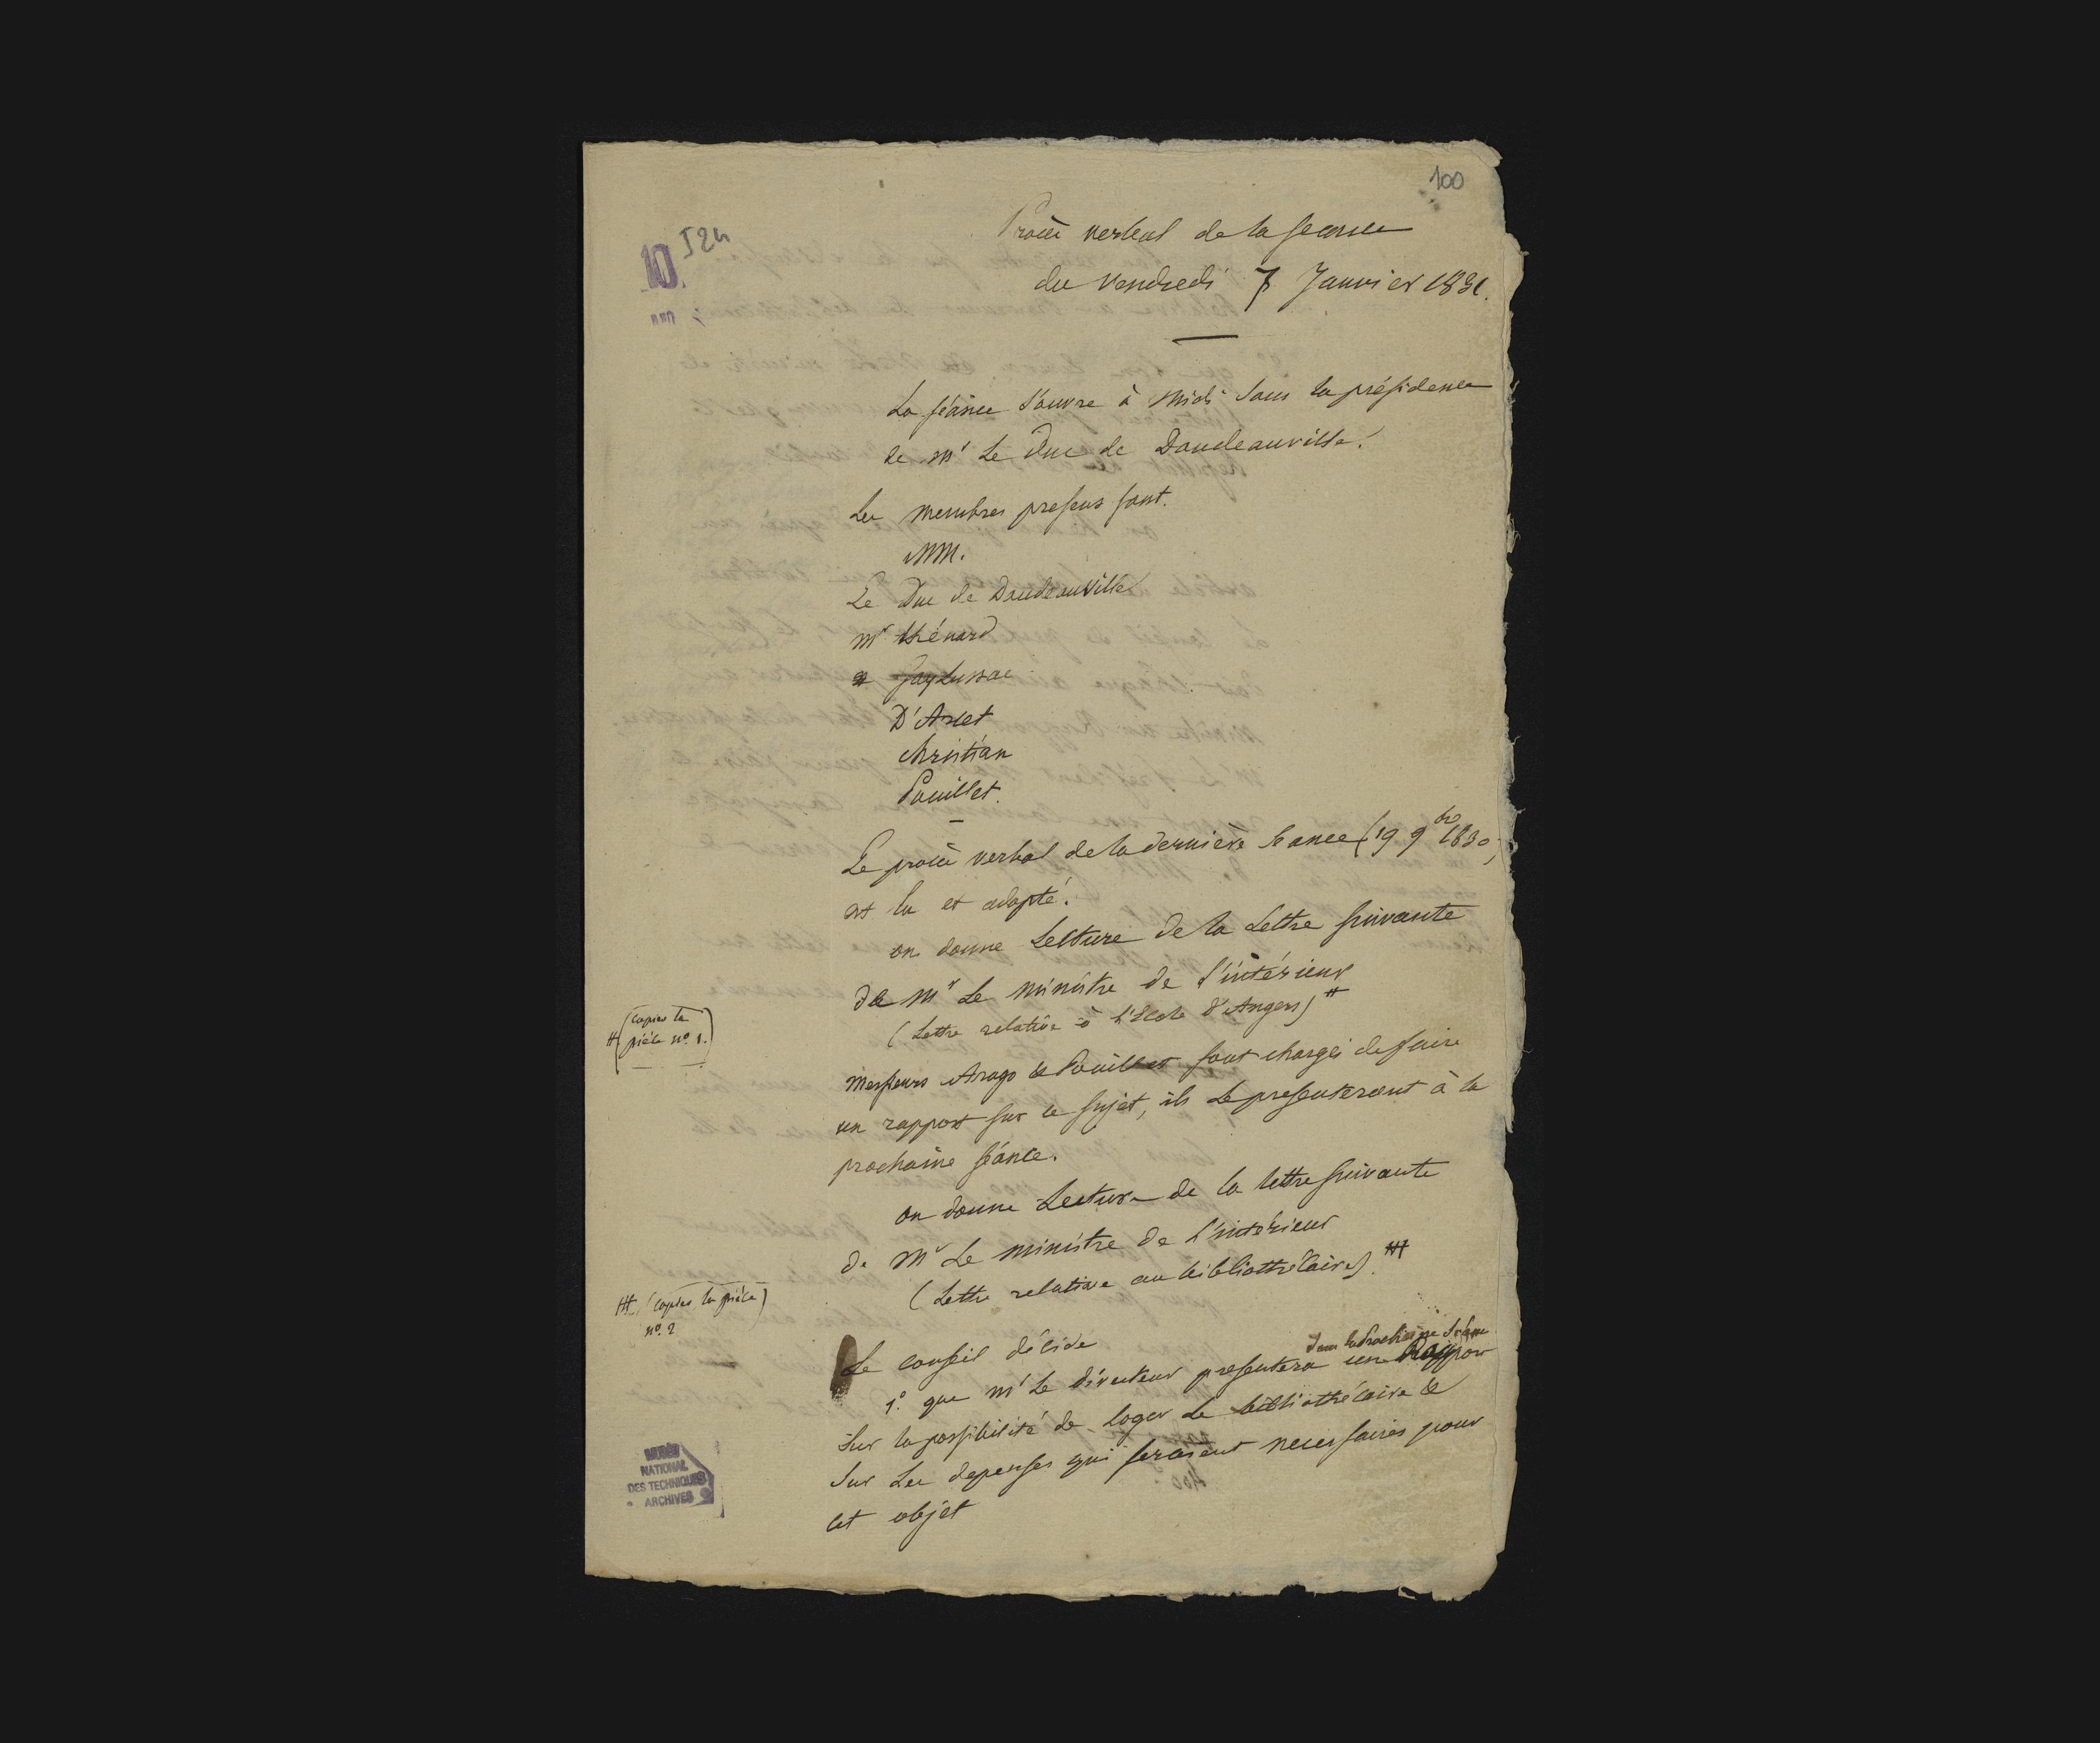 100
10 I 24
Procès verbal de la seance
du vendredi 7 Janvier 1831.
La séance s'ouvre à midi sous la présidence
de Mr Le Duc de Doudeauville.
Les membres presens sont.
MM.
Le Duc de Doudeauville
mr thénard
Gaylussac
D'Arcet
christian
Pouillet.
Le procès verbal de la dernière séance (19 9bre 1830)
est lu et adopté.
on donne Lecture de la Lettre suivante
de Mr Le ministre de l'intérieur
(Lettre relative à l'Ecole d'Angers) #
# (copier la
pièce no 1.)
messieurs Arago & Pouillet sont chargés de faire
un rapport sur ce sujet, ils le presenteront à la
prochaine séance.
on donne Lecture de la lettre suivante
de Mr Le ministre de l'intérieur
(Lettre relative au bibliothécaire).
(copier la pièce)
no. 2
Le conseil décide
dans la prochaine Séance
1.° que Mr Le directeur presentera un Rapport
Sur la possibilité de loger Le bibliothécaire &
Sur Les depenses qui seraient necessaires pour
cet objet
MUSÉE
NATIONAL
DES TECHNIQUES
ARCHIVES